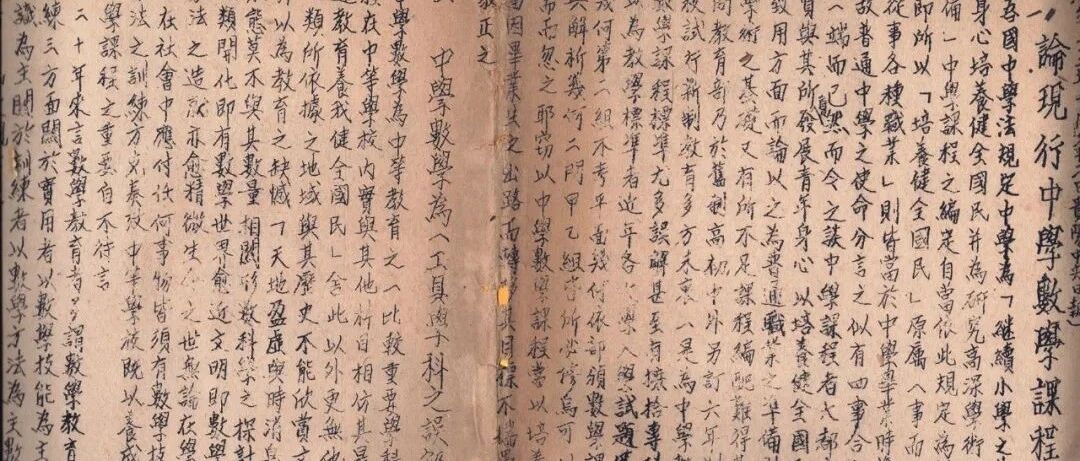 一、論現行中學數學課程
吾國中學法規定中學為「繼續小學之
身心培養健全國民并為研究高深學術
備」中學課程之編定自當依此規定為
即所以「培養健全國民」原屬一事而
從事各種職業」則皆當於中學畢業時
故普通中學之使命分言之似有四事合
一端而已然而今之談中學課程者大都
質與其所發展青年身心以培養健全國
學術之基礎又有所不足課程編配難得
致用方面而論以之為普通職業之準備
間教育部乃於舊制高初中外另訂六年
校試行新制教育多方未衷一是為中學
學課程標準尤多誤解甚至有
以為數學標準者近年各大學入學試題
幾何第二組不考平面幾何依部頒數學
與解析幾何二門甲乙組皆所必修焉可
而忽之耶窃以中學數學課程當以培
當因畢業生之出路而轉其目標不揣
教正之
中學數學為(工具學科)之誤
中學數學為中等教育之一比較重要學科
設在中等學校內實與其他科目相仿其
過教育養我健全國民」舍此以外更無他
類所依據之地域與其歷史不能欣賞文
所以為教育之缺憾「天地盈虛與時消息
態莫不與其數量相關的數科學之探討
類開化即有數學世界愈近文明即數學
法之造就亦愈精微生今之世無論在學
在社會中應付任何事物皆須有數學技
法之訓練方克奏效中等學校既以養成
學課程之重要自不待言
二十年來言數學教育者多謂數學教育
練三方面關於實用者以數學技能為主
識為主關於訓練者以數學方法為主數